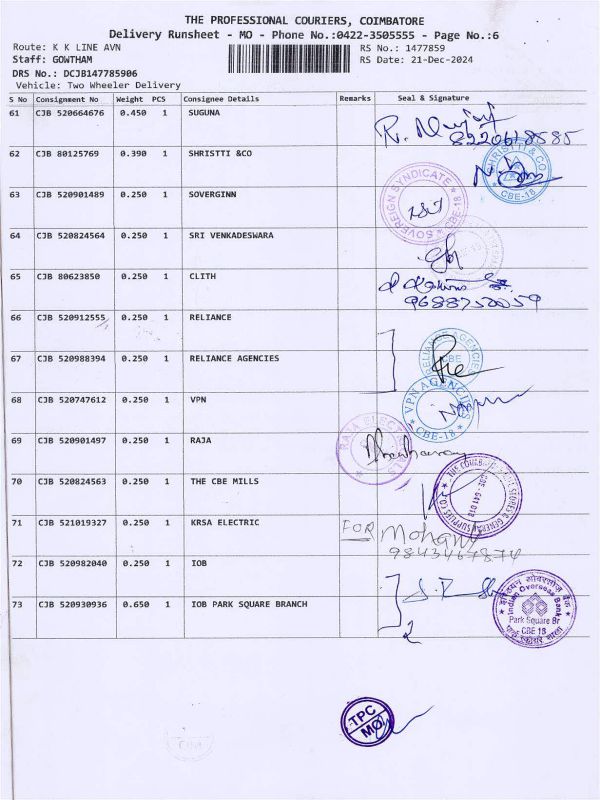 THE PROFESSIONAL COURIERS, COIMBATORE
Delivery Runsheet - MO - Phone No.:0422-3505555 - Page No.:6
Route: K K LINE AVN RS No.: 1477859
Staff: GOWTHAM RS Date: 21-Dec-2024
DRS No.: DCJB147785906
Vehicle: Two Wheeler Delivery
S No Consignment No Weight PCS Consignee Details Remarks Seal & Signature
61 CJB 520664676 0.450 1 SUGUNA
8220618585
62 CJB 80125769 0.390 1 SHRISTTI &CO
SHRISTTI & CO CBE-18
63 CJB 520901489 0.250 1 SOVERGINN
SOVEREIGN SYNDICATE CBE-18
64 CJB 520824564 0.250 1 SRI VENKADESWARA
65 CJB 80623850 0.250 1 CLITH
9688752059
66 CJB 520912555 0.250 1 RELIANCE
67 CJB 520988394 0.250 1 RELIANCE AGENCIES
RELIANCE AGENCIES CBE
68 CJB 520747612 0.250 1 VPN
VPN AGENCIES CBE-18
69 CJB 520901497 0.250 1 RAJA
70 CJB 520824563 0.250 1 THE CBE MILLS
71 CJB 521019327 0.250 1 KRSA ELECTRIC
FOR
72 CJB 520982040 0.250 1 IOB
73 CJB 520930936 0.650 1 IOB PARK SQUARE BRANCH
2
Indian Overseas Bank
Park Square Br
CBE 18
TPC
MO